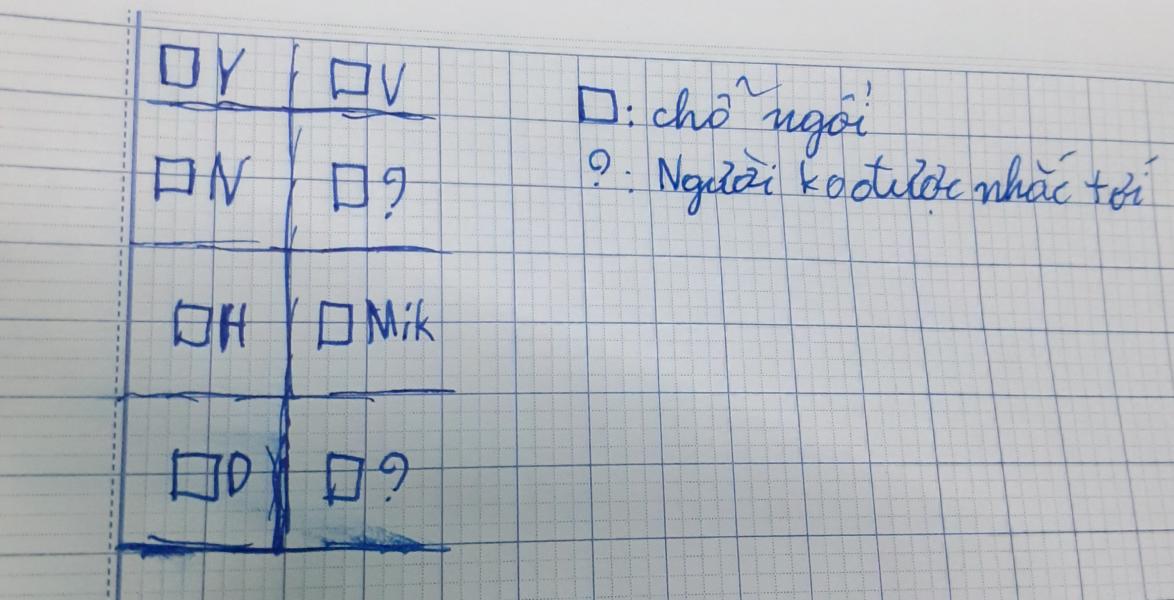 □ Y □ V
□ N □ ?
□ H □ Mik
□ D □ ?
□: chỗ ngồi
?: Người ko được nhắc tới